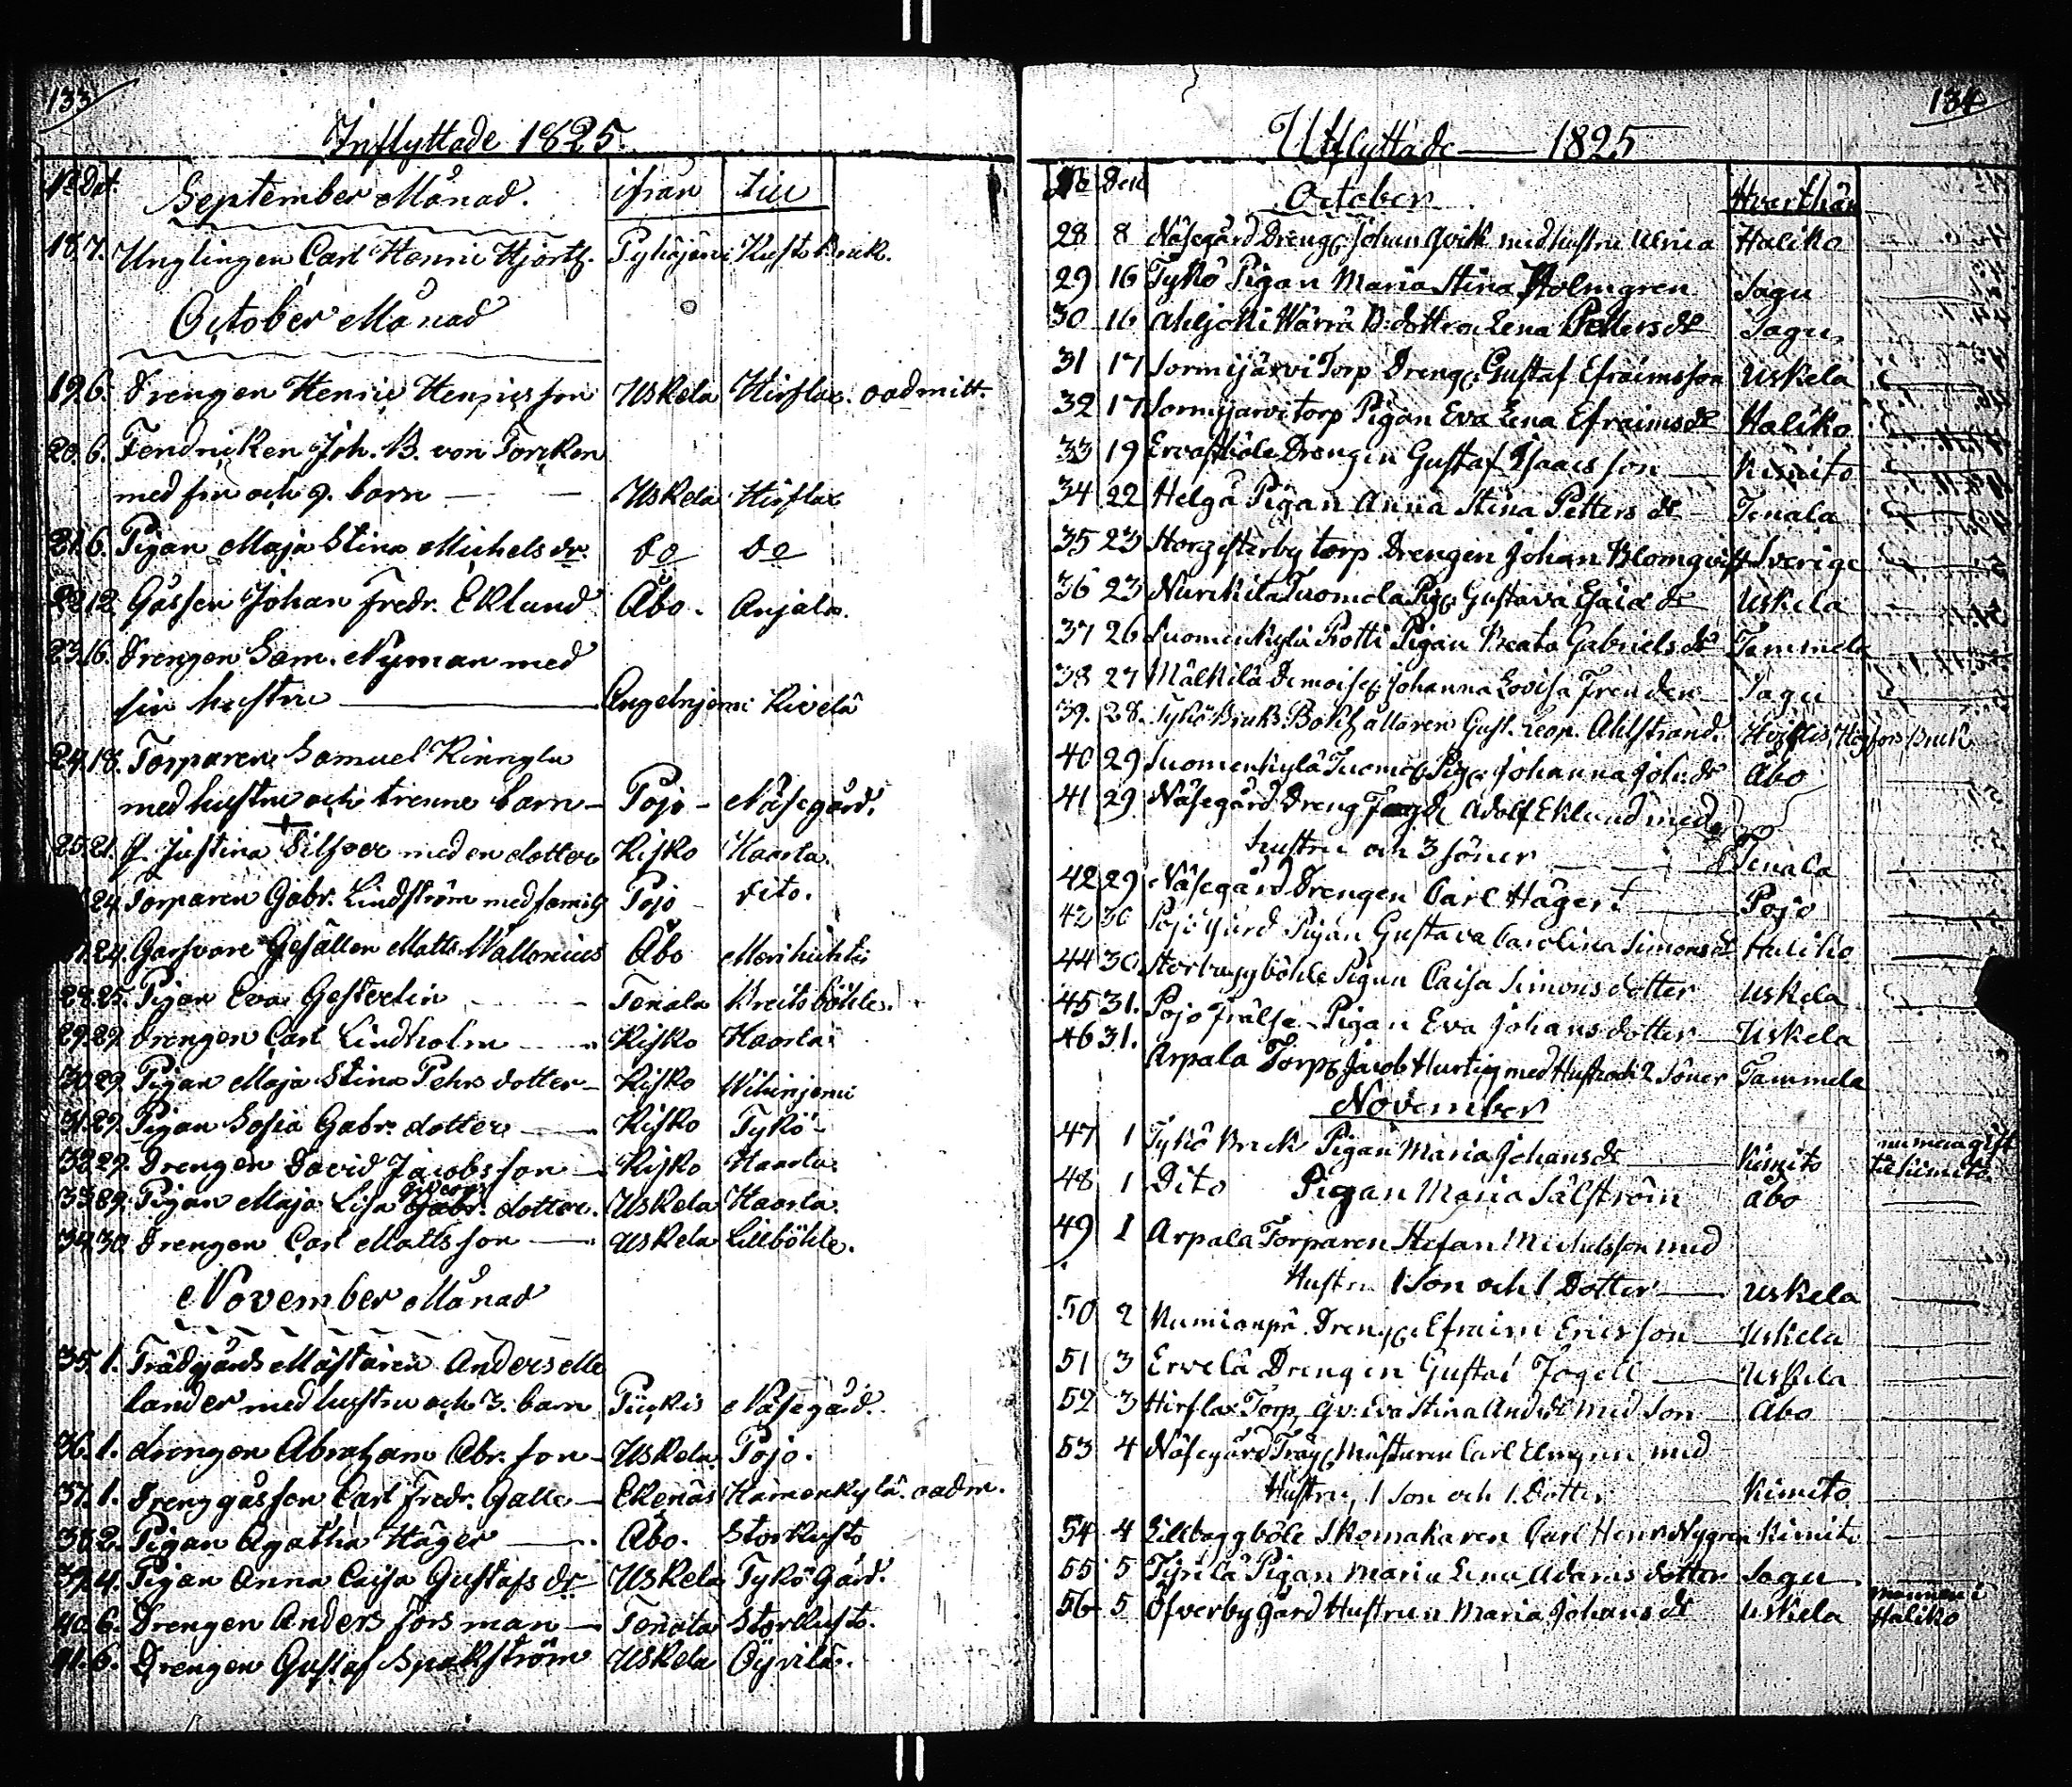 133
Inflyttade 1825.
No Dat. September Månad. ifrån till
18. 7. Unglingen Carl Henric Hjortz. Pyhäjervi Kusto Bruk.
October Månad
19. 6. Drengen Henric Henricsson Uskela Hirflax. oadmitt.
20. 6. Fendricken Joh. B. von Torcken
med fru och 9. barn — Uskela Hirflax
21. 6. Pigan Maja Stina Michelsdr. do do
22. 12. Gåssen Johan Fredr. Eklund Åbo. Anjala.
23. 16. Drengen Sam. Nyman med
sin hustru — Angelnjemi Kivelä
24. 18. Torparen Samuel
med hustru och trenne barn — Pojo — Näsegård.
25. 21. Justina Silfver med en dotter Kisko Haarla.
24. Torparen Gabr. Lindström med familj Pojo — dito.
24. Garfvare Gesällen Matts Wallonius Åbo
28. 25. Pigan Eva Gesterlin — Tenala Kreitsböhle.
29. 29. Drengen Carl Lindholm — Kisko Haarla
30. 29. Pigan Maja Stina Pehrsdotter — Kisko Wihinjemi
31. 29. Pigan Sofia Gabr. dotter — Kisko Tykö
32. 29. Drengen David Jacobsson — Kisko Haarla.
33. 29. Pigan Maja Lisa Gabr. dotter. Uskela Haarla.
34. 30. Drengen Carl Mattsson — Uskela Lillböhle.
November Månad
35. 1. Trädgårds Mästaren Anders Me
lander med hustru och 3. barn Piikis Näsegård.
36. 1. drengen Abraham Abr. son — Uskela Pojo.
37. 1. Drenggåssen Carl Fredr. Galle — Ekenäs Hämenkylä. oadm.
38. 2. Pigan Agatha Häger — Åbo. Storkusto
39. 4. Pigan Anna Caisa Gustafsdr Uskela Tykö Gård.
40. 6. Drengen Anders Forsman — Tenala Storkusto.
41. 6. Drengen Gustaf Spakström Uskela
134
Utflyttade — 1825
No Den October Hvarthän
28 8 Näsegård Dreng. Johan Qvik med hustru Ulrica Haliko
29 16 Tykö Pigan Maria Stina Holmgren Sagu
30 16 Ahljoki Wärrä B.dottren Lena Pettersdr Sagu
31 17 Sormijärvi Torp Dreng. Gustaf Efraimsson Uskela
32 17 Sormijärvi torp Pigan Eva Lena Efraimsdr Haliko
33 19 Ervastböle Drengen Gustaf Isaacsson — Kimito
34 22 Helgå Pigan Anna Stina Pettersdr — Tenala
35 23 torp Drengen Johan Blomqvist Sverige
36 23 Nurkkila Tuomola Pig. Gustava Esaiædr Uskela
37 26 Suomenkylä Protti Pigan Beata Gabrielsdr Tammela
38 27 Mälkilä Demoisel. Johanna Lovisa Frenden Sagu
39. 28. Tykö Bruks Bokhållaren Gust. Leop. Ahlstrand. Högfors Bruk
40 29 Suomenkylä Tuomol. Pig. Johanna Joh. dr Åbo
41 29 Näsegård Dreng Adolf Eklund med
hustru och 3 söner — Tenala
42 29 Näsegård Drengen Carl Hägert — Pojo
42 30 Pojo Gård Pigan Gustava Carolina Simonsdr Haliko
44 30 Storbaggböhle Pigan Caisa Simons dotter Uskela
45 31. Pojo Frälse Pigan Eva Johans dotter — Uskela
46 31. Arpala Torp. Jacob Hurtig med Hust. och 2 Söner Tammela
November
47 1 Tykö Bruk Pigan Maria Johansdr — Kimito numera gift til Kimito
48 1 Dito Pigan Maria Sälström Åbo
49 1 Arpala Torparen Stefan Michelsson med
Hustru 1 Son och 1 Dotter — Uskela
50 2 Dreng. Efraim Ericsson — Uskela
51 3 Ervelä Drengen Gustaf Fogell — Uskela
52 3 Hirflax Torp. Qv: Eva Stina And. dr med Son Åbo
53 4 Näsegård Träg. Mästaren Carl Elmgren med
Hustru, 1 Son och 1. Dotter Kimito
54 4 Lillbaggböle Skomakaren Carl Henr. Nygren Kimito
55 5 Pigan Maria Lena Adams dotter Sagu
56 5 Öfverby Gård Hustrun Maria Johansdr Uskela mannen i Haliko